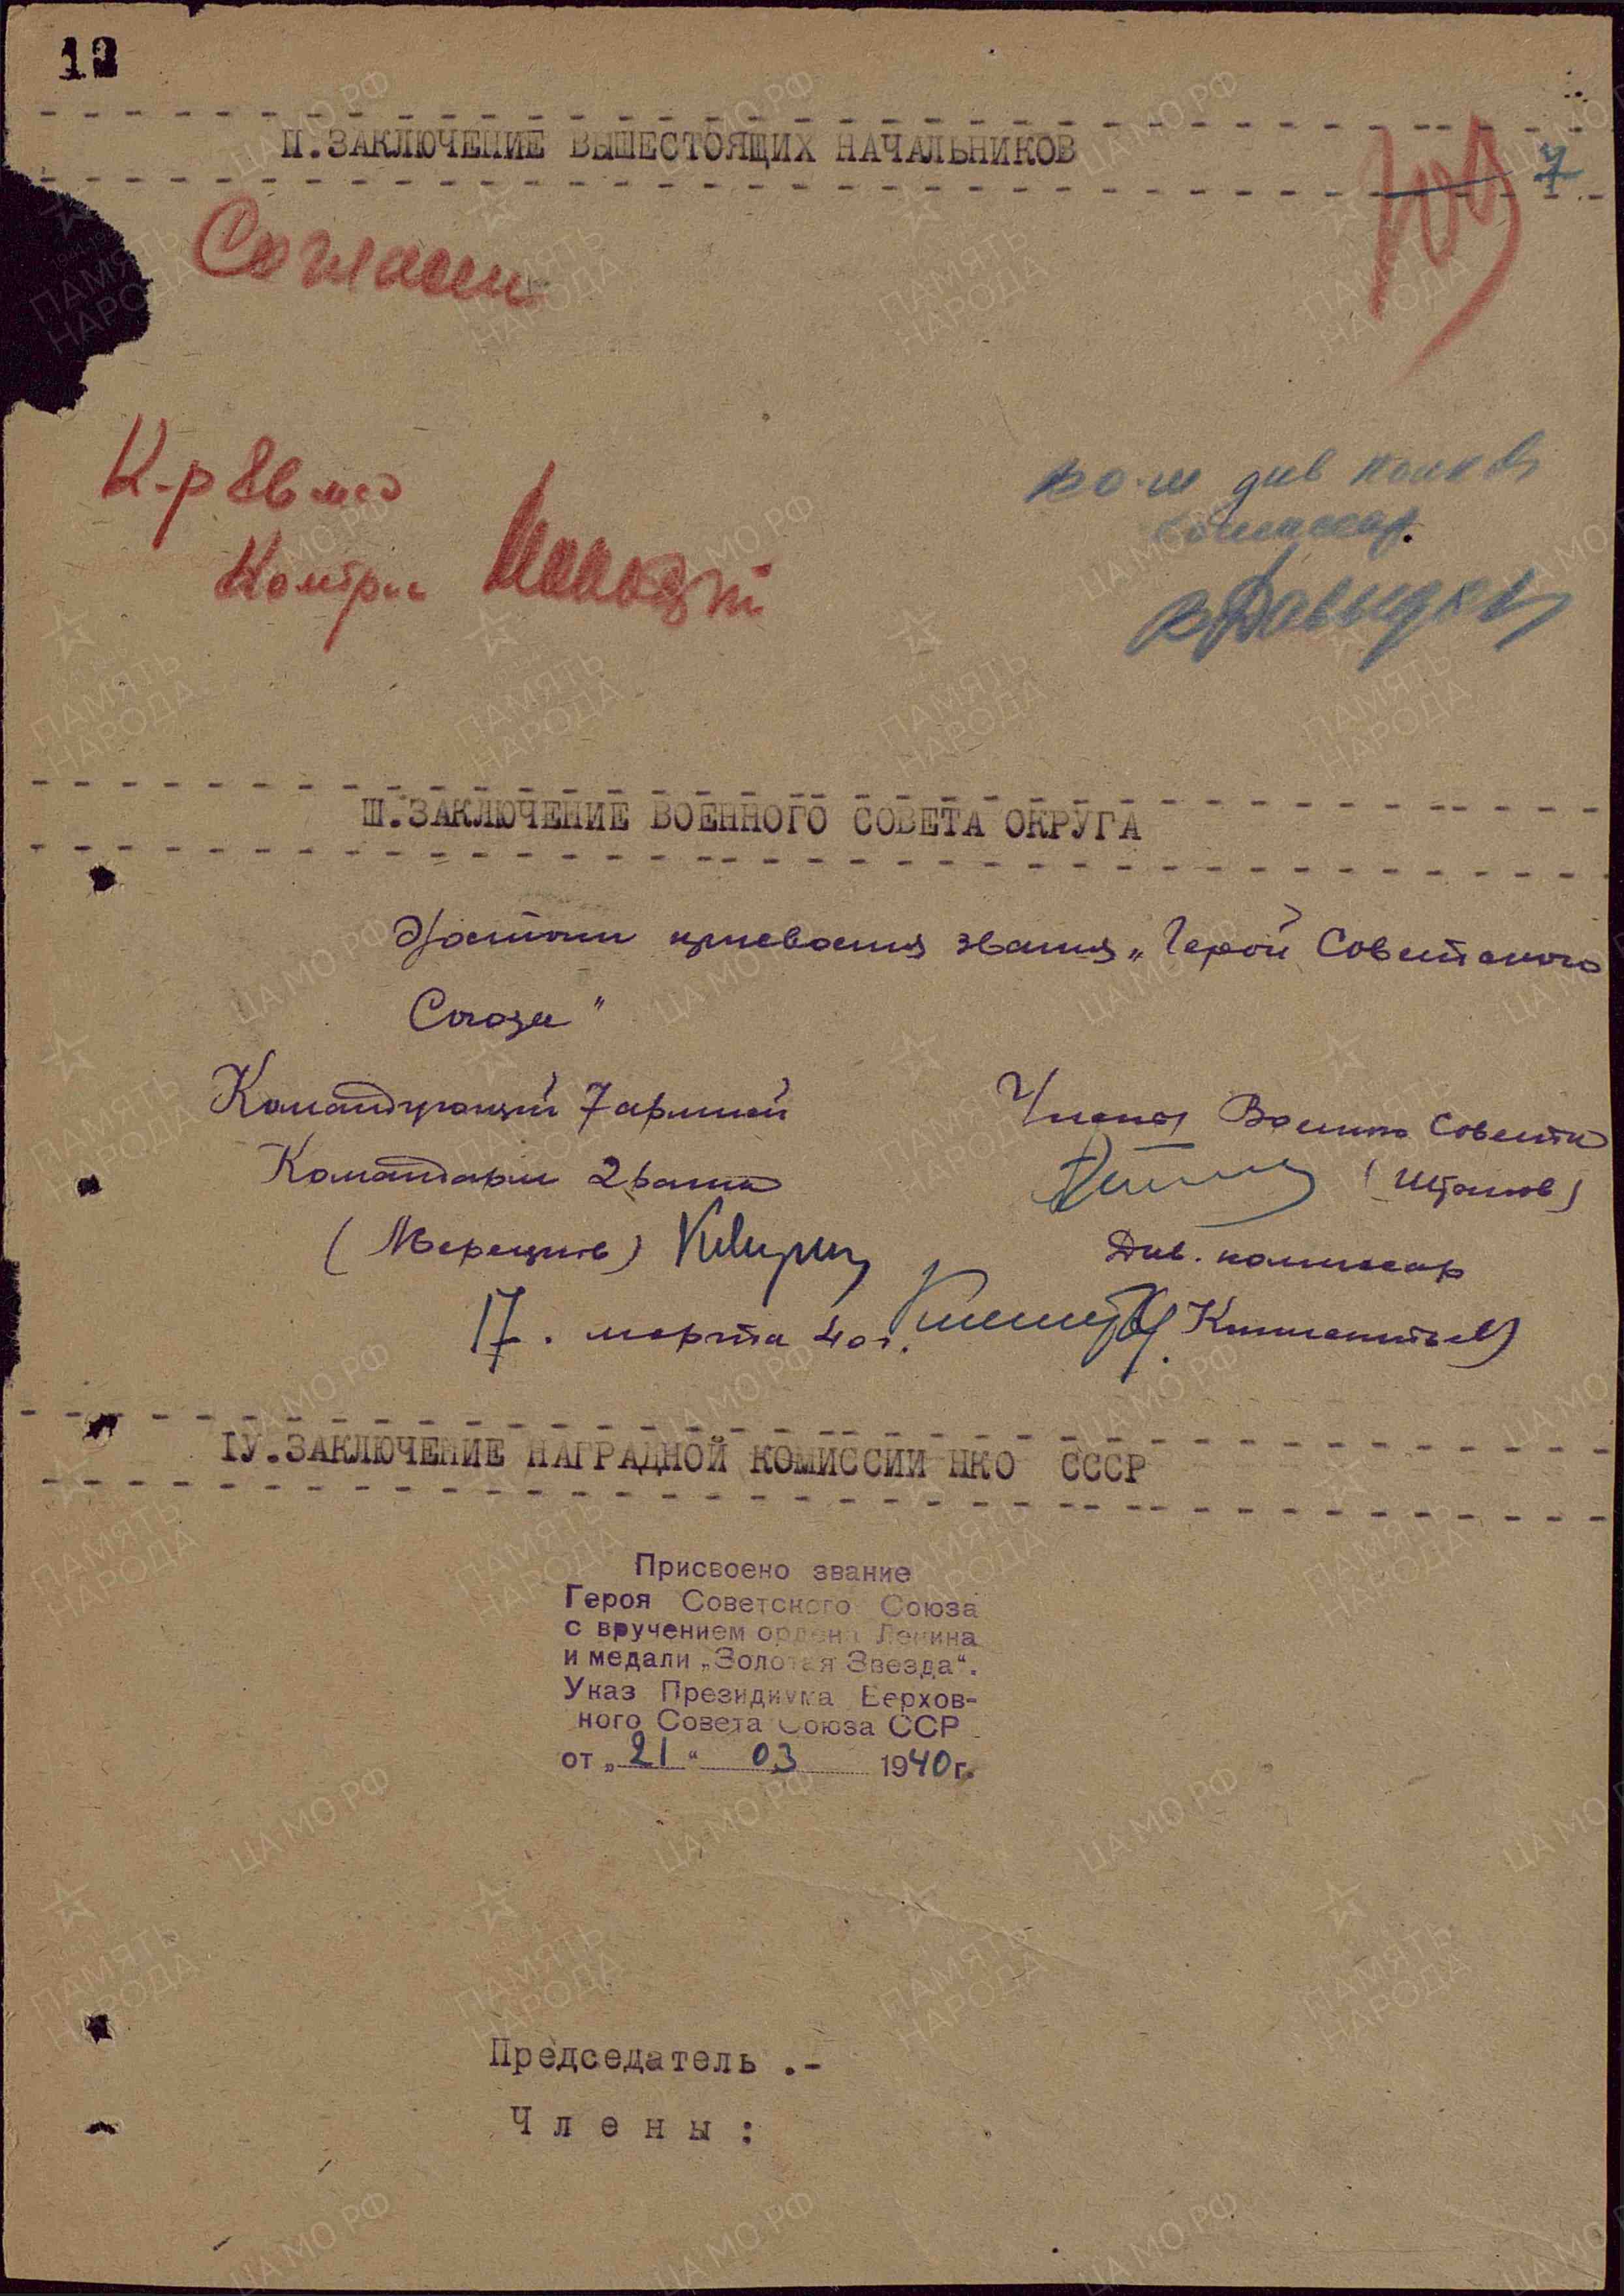 12
II. ЗАКЛЮЧЕНИЕ ВЫШЕСТОЯЩИХ НАЧАЛЬНИКОВ
7
Согласен
К-р 86 мсд
Комбриг
воен ком див полков
комиссар.
Давыдков
Ш. ЗАКЛЮЧЕНИЕ ВОЕННОГО СОВЕТА ОКРУГА
Достоин присвоения звания „Герой Советского
Союза"
Командующий 7 армией
Командарм 2 ранга
(Мерецков)
Члены Военного Совета
(Штыков)
Див. комиссар
17. марта 40 г.
IУ. ЗАКЛЮЧЕНИЕ НАГРАДНОЙ КОМИССИИ НКО СССР
Присвоено звание
Героя Советского Союза
с вручением ордена Ленина
и медали „Золотая Звезда“.
Указ Президиума Верхов-
ного Совета Союза ССР
от „21“ 03 1940 г.
Председатель .-
Члены:
ЦА МО РФ
ПАМЯТЬ
НАРОДА